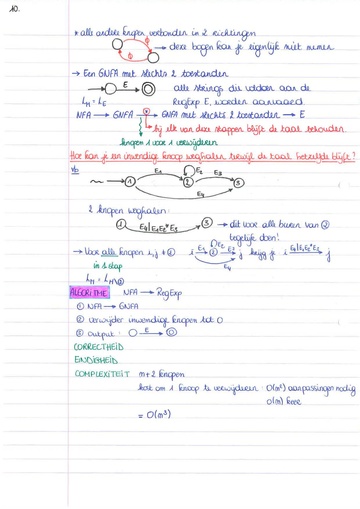 10.
* alle andere knopen verbonden in 2 richtingen
∅
→ deze bogen kan je eigenlijk niet nemen
∅
→ Een GNFA met slechts 2 toestanden
E
alle strings die voldoen aan de
L_M = L_E
RegExp E, worden aanvaard
NFA → GNFA → GNFA met slechts 2 toestanden → E
↳ bij elk van deze stappen blijft de taal behouden.
knopen 1 voor 1 verwijderen
Hoe kan je een inwendige knoop weghalen terwijl de taal hetzelfde blijft?
Vb
E1 E2 E3
1 2 3
E4
2 knopen weghalen:
1 E4|E1E2*E3 3 → dit voor alle buren van 2
tegelijk doen!
→ Voor alle knopen i, j ≠ 2
i E1 2 E2 E3 j krijg je i E4|E1E2*E3 j
E4
in 1 stap
ALGORITME NFA → RegExp
① NFA → GNFA
② verwijder inwendige knopen tot 0
③ output: E
CORRECTHEID
EINDIGHEID
COMPLEXITEIT m+2 knopen
kost om 1 knoop te verwijderen: O(m²) aanpassingen nodig
O(m) keer
= O(m³)